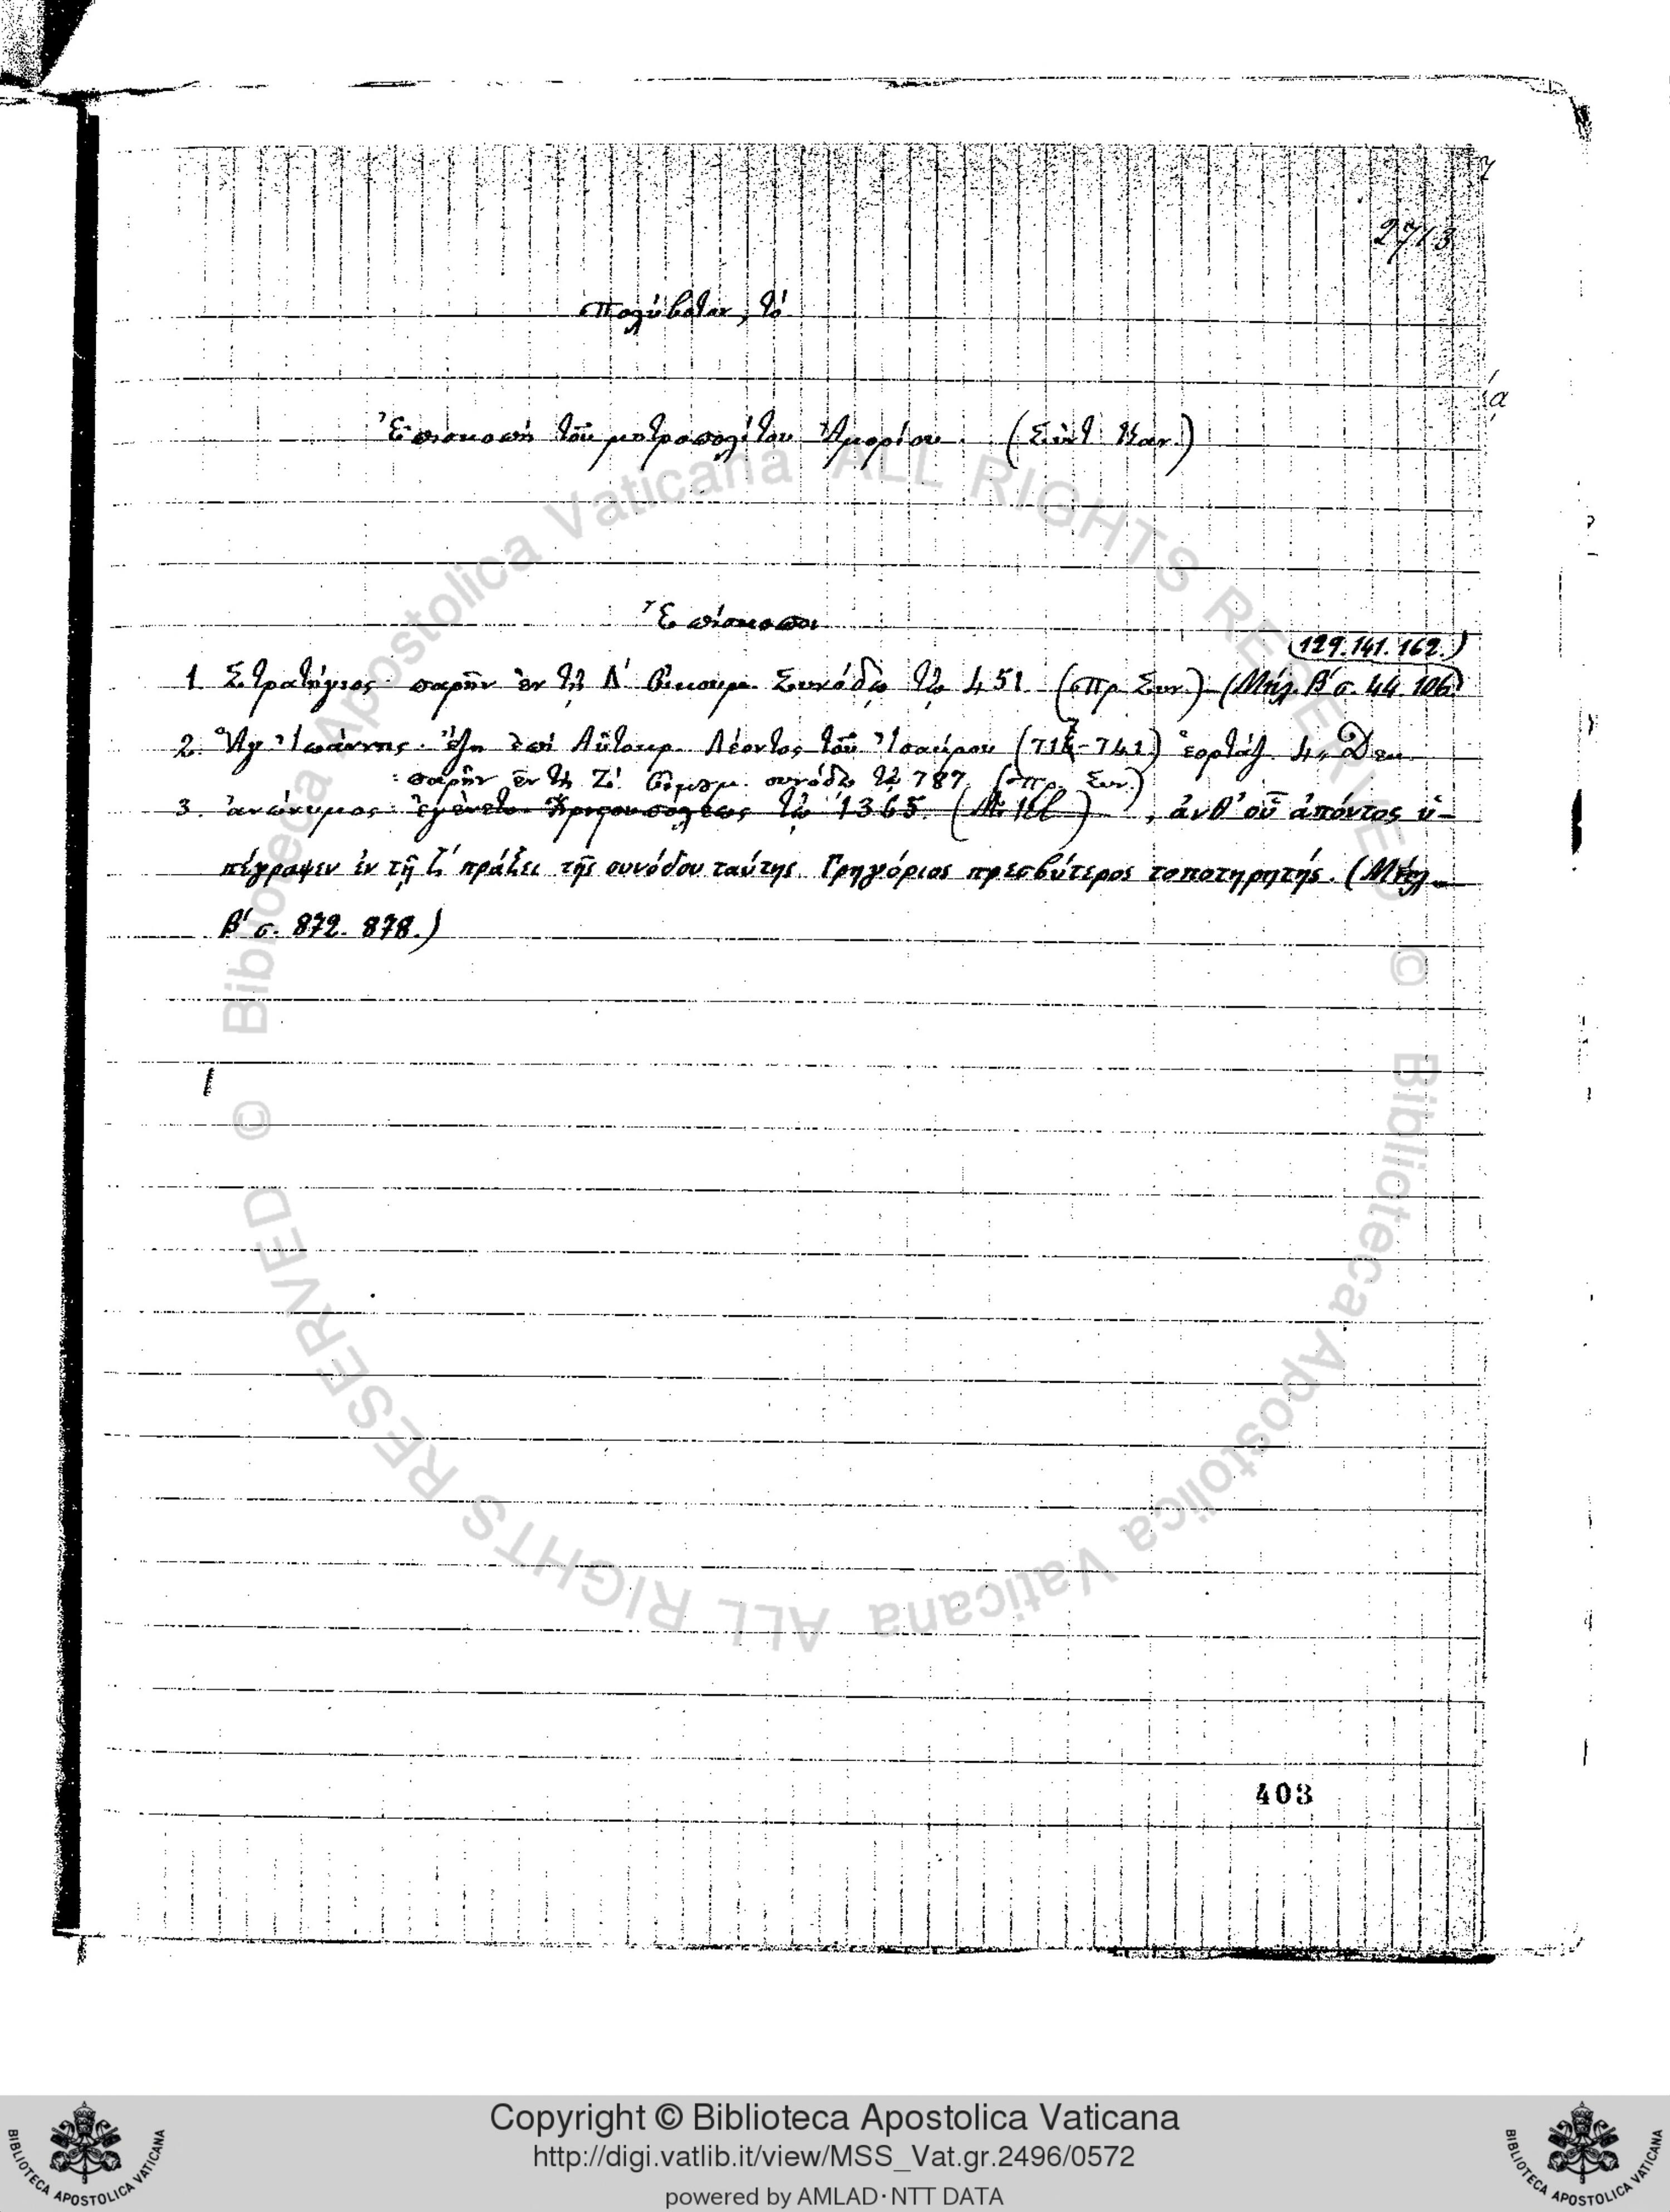 2713
Πολύβοτον, τό
Ἐπισκοπή τοῦ μητροπολίτου Ἀμορίου. (Σύντ. Καν.)
Ἐπίσκοποι
129. 141. 162.)
1. Στρατήγιος· παρῆν ἐν τῇ Δ' Οἰκουμ. Συνόδῳ τῷ 451 (Πρ. Συν.) (Μπλ. Β' σ. 44. 106
2. Ἅγ. Ἰωάννης· ἔζη ἐπί Αὐτοκρ. Λέοντος τοῦ Ἰσαύρου (717-741) ἑορτάζ. 4, Δεκ.
: παρῆν ἐν τῇ Ζ' Οἰκουμ. συνόδῳ τῷ 787. (Πρ. Συν.)
3. ἀνώνυμος· ἐγένετο τῷ 1365. , ἀνθ' οὗ ἀπόντος ὑ-
πέγραψεν ἐν τῇ ζ' πράξει τῆς συνόδου ταύτης Γρηγόριος πρεσβύτερος τοποτηρητής. (Μπλ.
Β' σ. 872. 878.)
403
© Biblioteca Apostolica Vaticana ALL RIGHTS RESERVED © Biblioteca Apostolica Vaticana ALL RIGHTS RESERVED
Copyright © Biblioteca Apostolica Vaticana
http://digi.vatlib.it/view/MSS_Vat.gr.2496/0572
powered by AMLAD·NTT DATA
BIBLIOTECA APOSTOLICA VATICANA
BIBLIOTECA APOSTOLICA VATICANA